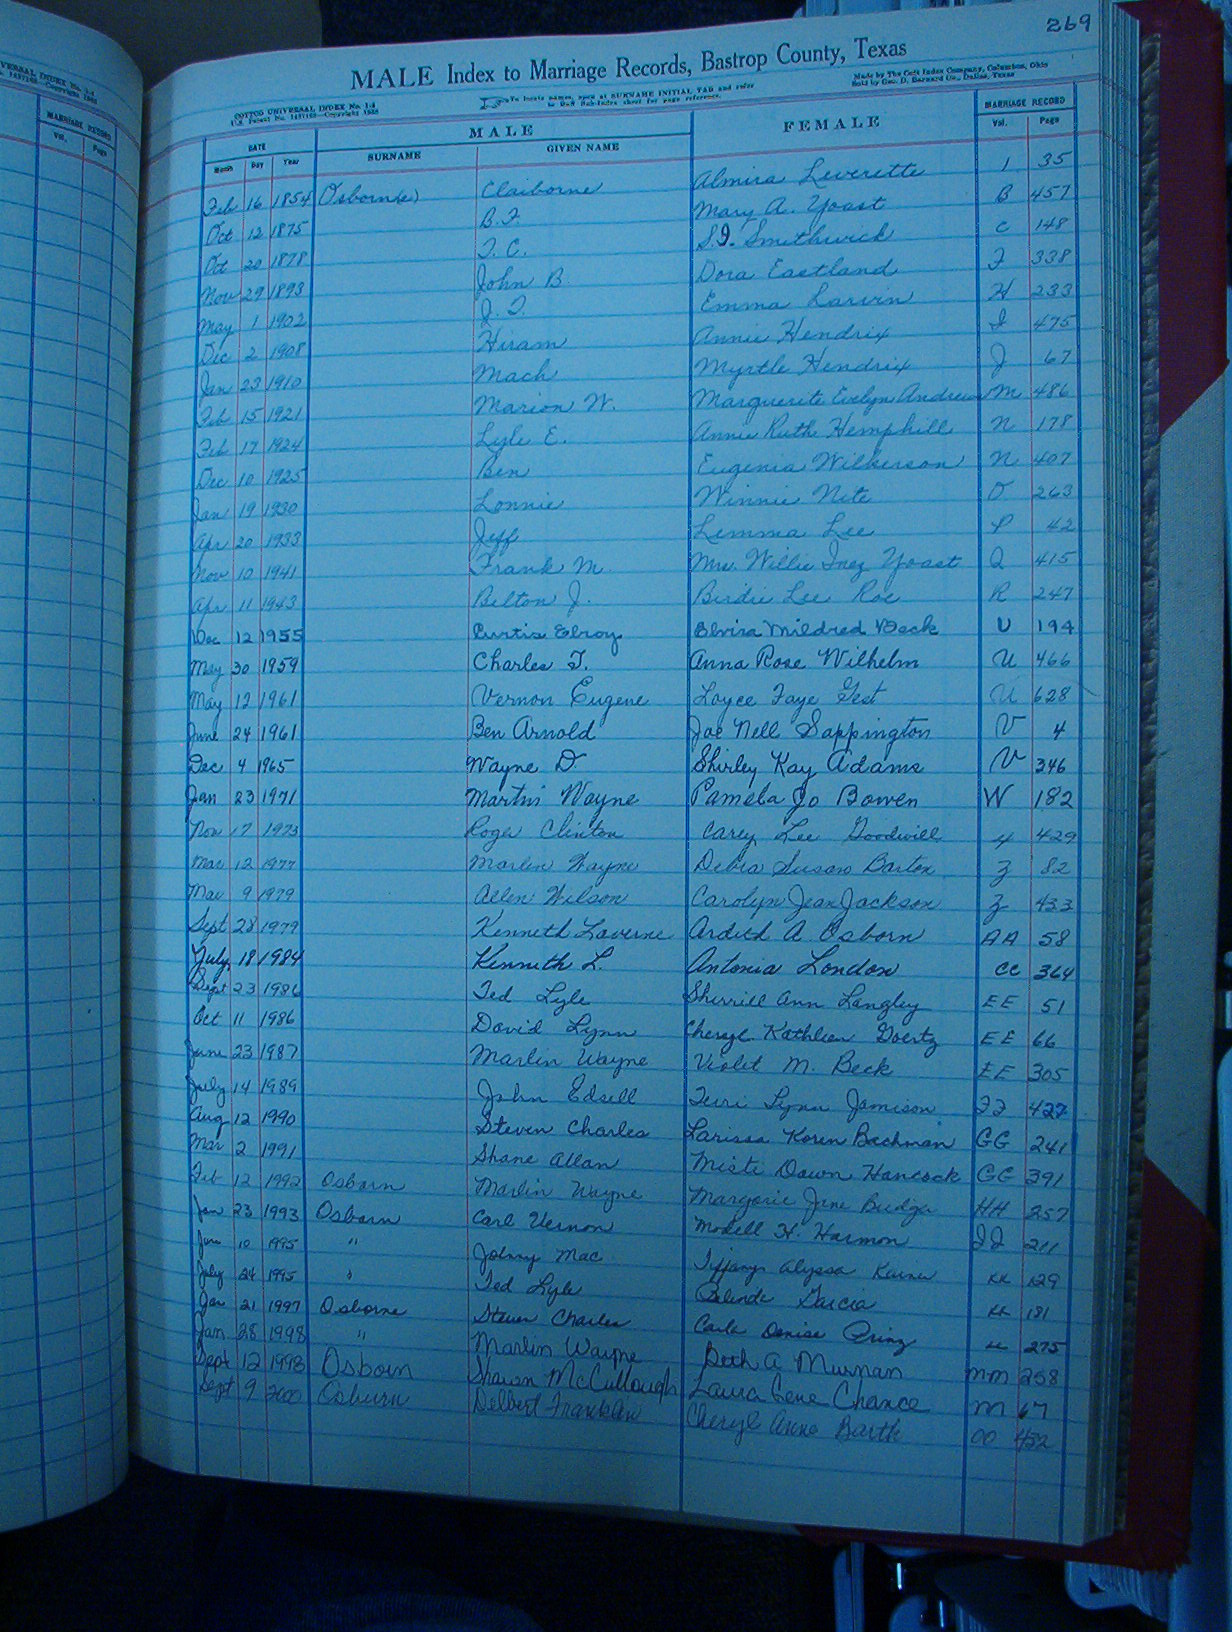 VERSAL INDEX No. 1-4
No. 1457168—Copyright 1888
MARRIAGE RECORD
Vol. Page
269
MALE Index to Marriage Records, Bastrop County, Texas
COTTCO UNIVERSAL INDEX No. 1-4
To locate names, open at SURNAME INITIAL TAB and refer
to Sub-Index sheet for page reference.
Made by The Cott Index Company, Columbus, Ohio
Sold by Geo. D. Barnard Co., Dallas, Texas
DATE MALE FEMALE MARRIAGE RECORD
Month Day Year SURNAME GIVEN NAME Vol. Page
Feb 16 1854 Osborn(e) Claiborne Almira Leverette 1 35
Oct 12 1875 B.F. Mary A. Yoast B 457
Oct 20 1878 T. C. S.I. Smithwick C 148
Nov 29 1893 John B Dora Eastland F 338
May 1 1902 J. T. Emma Larvin H 233
Dec 2 1908 Hiram Annie Hendrix I 475
Jan 23 1910 Mach Myrtle Hendrix J 67
Feb 15 1921 Marion W. Marguerite Evelyn Andrews M 486
Feb 17 1924 Lyle E. Annie Ruth Hemphill N 178
Dec 10 1925 Ben Eugenia Wilkerson N 407
Jan 19 1930 Lonnie Winnie Nite O 263
Apr 20 1933 Jeff Lemma Lee P 42
Nov 10 1941 Frank M. Mrs. Willie Inez Yoast Q 415
Apr 11 1943 Belton J. Birdie Lee Roe R 247
Dec 12 1955 Curtis Elroy Elvira Mildred Beck U 194
May 30 1959 Charles T. Anna Rose Wilhelm U 466
May 12 1961 Vernon Eugene Loyce Faye Gest U 628
June 24 1961 Ben Arnold Joe Nell Sappington V 4
Dec 4 1965 Wayne D Shirley Kay Adams V 346
Jan 23 1971 Martin Wayne Pamela Jo Bowen W 182
Nov 17 1973 Roger Clinton Carey Lee Goodwill 429
Mar 12 1977 Marlin Wayne Debra Susan Barton Z 82
Mar 9 1979 Allen Wilson Carolyn Jean Jackson Z 433
Sept 28 1979 Kenneth Laverne Ardith A. Osborn AA 58
July 18 1984 Kenneth L. Antonia London CC 364
Sept 23 1986 Ted Lyle Sherrill Ann Langley EE 51
Oct 11 1986 David Lynn Cheryl Kathleen Goertz EE 66
June 23 1987 Marlin Wayne Violet M. Beck EE 305
July 14 1989 John Edsell Terri Lynn Jamison FF 427
Aug 12 1990 Steven Charles Larissa Koren Bachman GG 241
Mar 2 1991 Shane Allan Misti Dawn Hancock GG 391
Feb 12 1992 Osborn Marlin Wayne Margorie Jane HH 257
Jan 23 1993 Osborn Carl Vernon Modell H. Harmon 211
10 1995 " Johnny Mac Tiffany Alyssa KK 129
July 24 1995 " Ted Lyle Belinda Garcia KK 181
Jan 21 1997 Osborne Steven Charles Carla Denise Prinz 275
Jan 28 1998 " Marlin Wayne Beth A Murnan MM 258
Sept 12 1998 Osborn Shawn McCullough Laura Gene Chance M 67
Sept 9 2000 Osburn Delbert Franklin Cheryl Anne Bartk OO 452